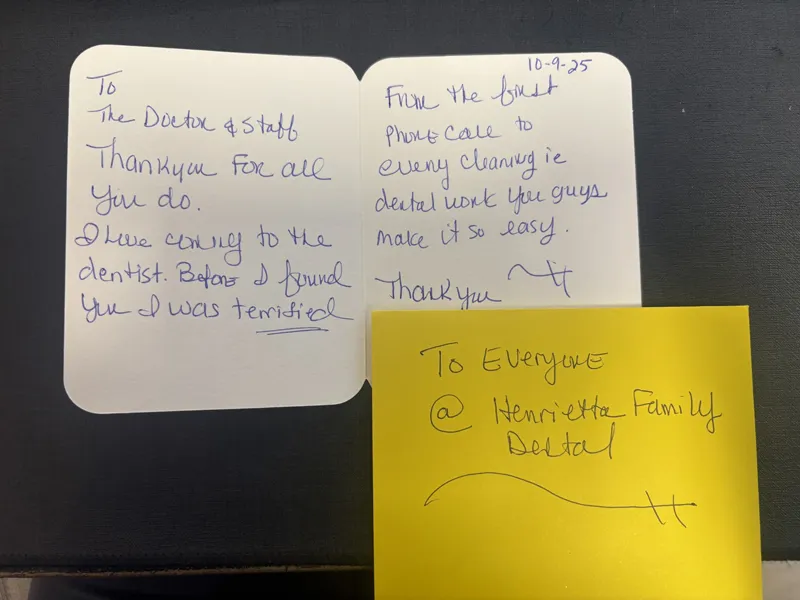 To
The Doctor & Staff
Thankyou For all
You do.
I Love coming to the
dentist. Before I found
You I was terrified
10-9-25
From the first
phone call to
every cleaning ie
dental work you guys
make it so easy.
Thankyou
To Everyone
@ Henrietta Family
Dental